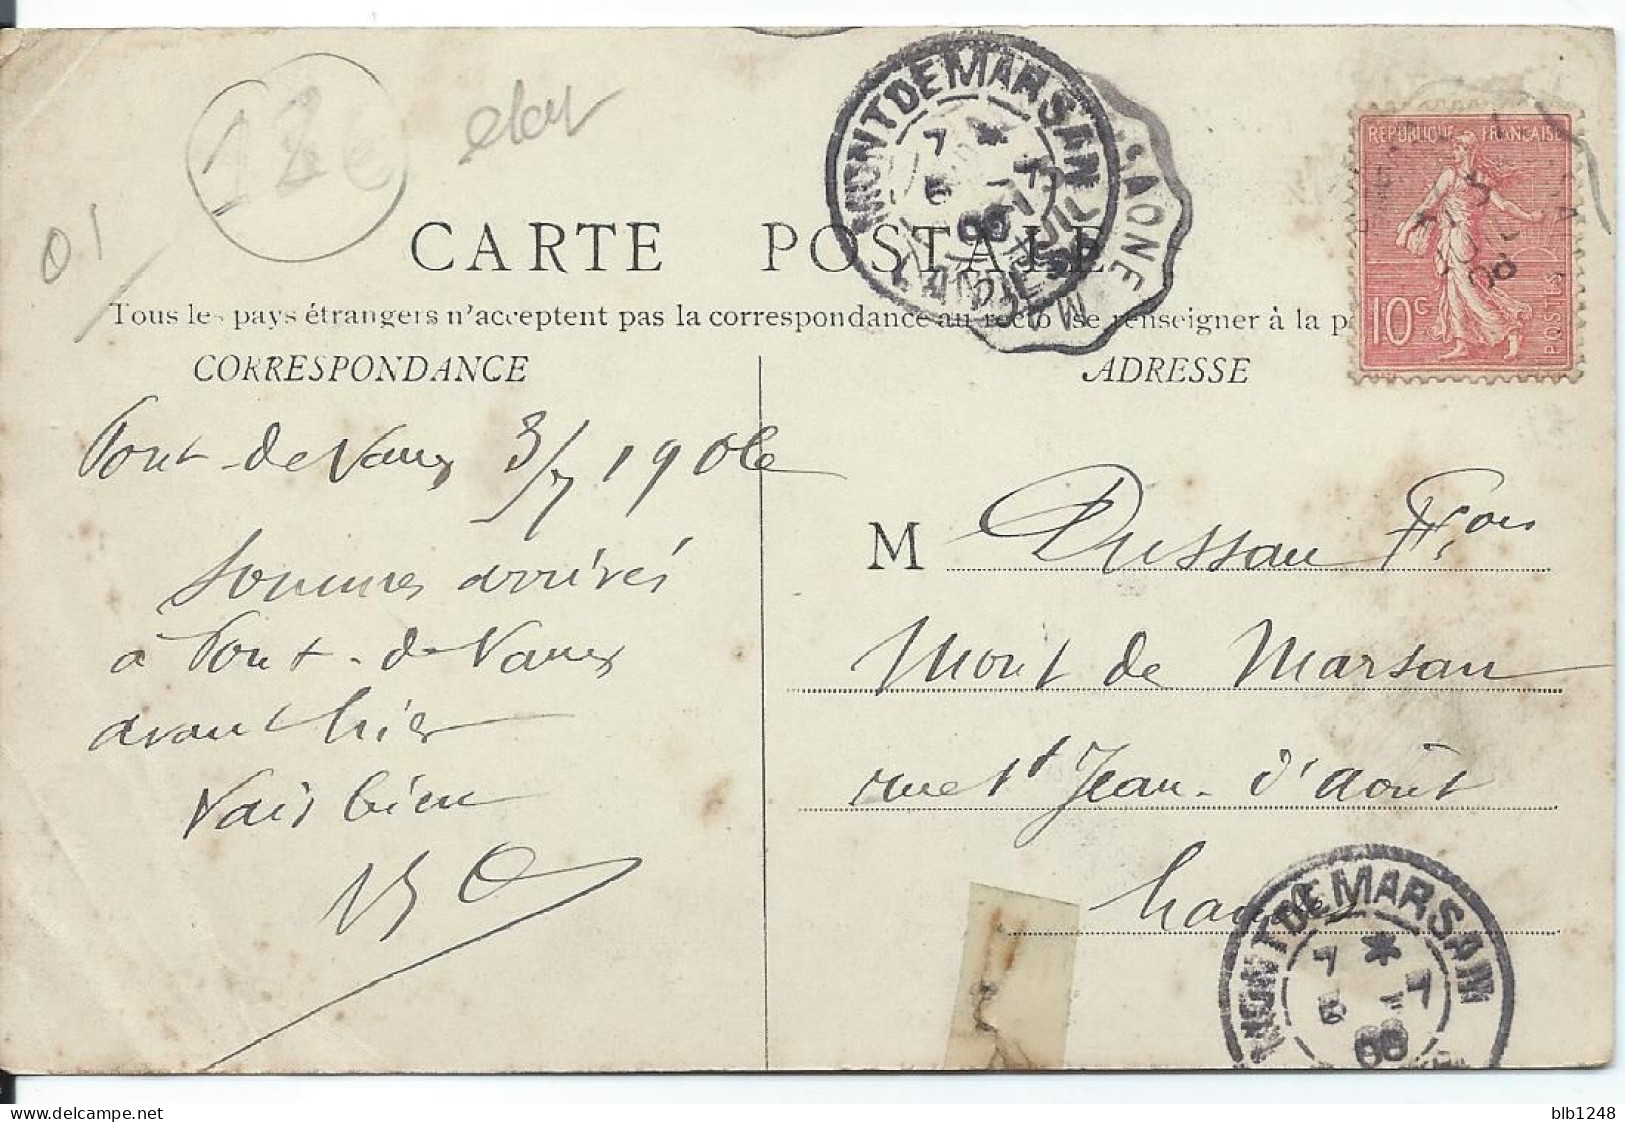 12€
état
01
MONT DE MARSAN
7 * 7
5 -7
06
LANDES
SAONE
REPUBLIQUE FRANÇAISE
10c
POSTES
CARTE POSTALE
Tous les pays étrangers n'acceptent pas la correspondance au recto (se renseigner à la p
CORRESPONDANCE
Pont-de-Vaux 3/7 1906
Sommes arrivés
à Pont-de-Vaux
avant hier
Vais bien
ADRESSE
M Dussau Fçois
Mont de Marsan
rue St Jean-d'août
Landes
MONT DE MARSAN
7 * 7
5 -7
06
blb1248